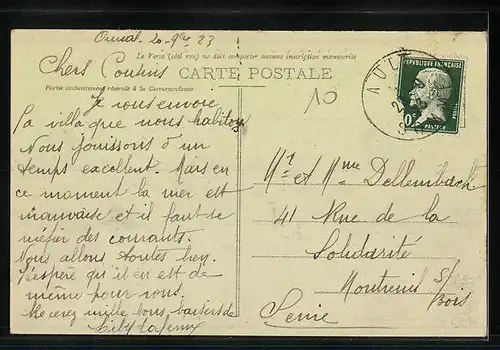 20-9bre 23
Le Verso (côté vue) ne doit comporter aucune inscription manuscrite
Chers Cousins
CARTE POSTALE
Partie exclusivement réservée à la Correspondance
10
AUT
RÉPUBLIQUE FRANÇAISE
PASTEUR
Je vous envoie
la villa que nous habitons
Nous jouissons d'un
temps excellent. Mais en
ce moment la mer est
mauvaise et il faut se
méfier des courants.
Nous allons toutes bien.
J'espère qu'il en est de
même pour vous.
Recevez mille bons baisers de
Mr et Mme Dellembach
41 Rue de la
Solidarité
Montreuil s/
Bois
Seine